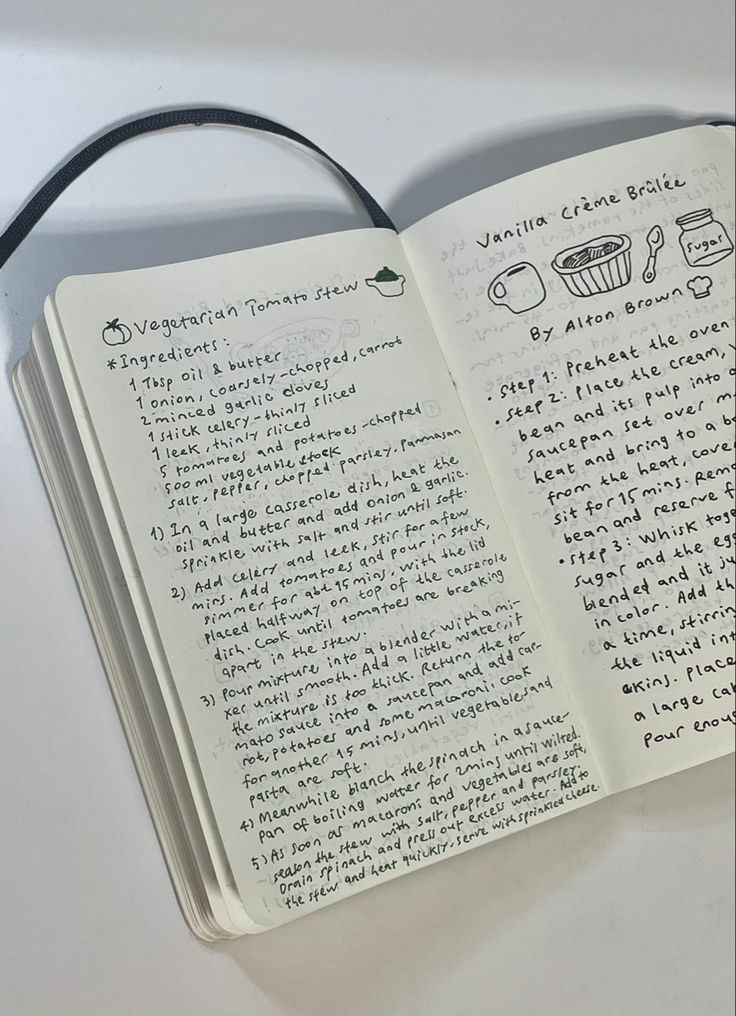 Vegetarian Tomato stew
* Ingredients:
1 Tbsp oil & butter
1 onion, coarsely-chopped, carrot
2 minced garlic cloves
1 stick celery-thinly sliced
1 leek, thinly sliced
5 tomatoes and potatoes-chopped
500 ml vegetable stock
salt, pepper, chopped parsley, Parmasan
1) In a large casserole dish, heat the
oil and butter and add onion & garlic.
sprinkle with salt and stir until soft.
2) Add celery and leek, stir for a few
mins. Add tomatoes and pour in stock,
simmer for abt 15 mins, with the lid
placed halfway on top of the casserole
dish. Cook until tomatoes are breaking
apart in the stew.
3) Pour mixture into a blender with a mi-
xer until smooth. Add a little water, if
the mixture is too thick. Return the to-
mato sauce into a saucepan and add car-
rot, potatoes and some macaroni. Cook
for another 15 mins, until vegetables and
pasta are soft.
4) Meanwhile blanch the spinach in a sauce-
pan of boiling water for 2mins until wilted.
5) As soon as macaroni and vegetables are soft,
season the stew with salt, pepper and parsley.
Drain spinach and press out excess water. Add to
the stew and heat quickly, serve with sprinkled cheese.
Vanilla Crème Brûlée
sugar
By Alton Brown
• Step 1: Preheat the oven
• Step 2: Place the cream,
bean and its pulp into a
saucepan set over m
heat and bring to a bo
from the heat, cove
sit for 15 mins. Remo
bean and reserve f
• Step 3: Whisk toge
sugar and the egg
blended and it ju
in color. Add th
a time, stirrin
the liquid int
ekins. Place
a large ca
pour enoug